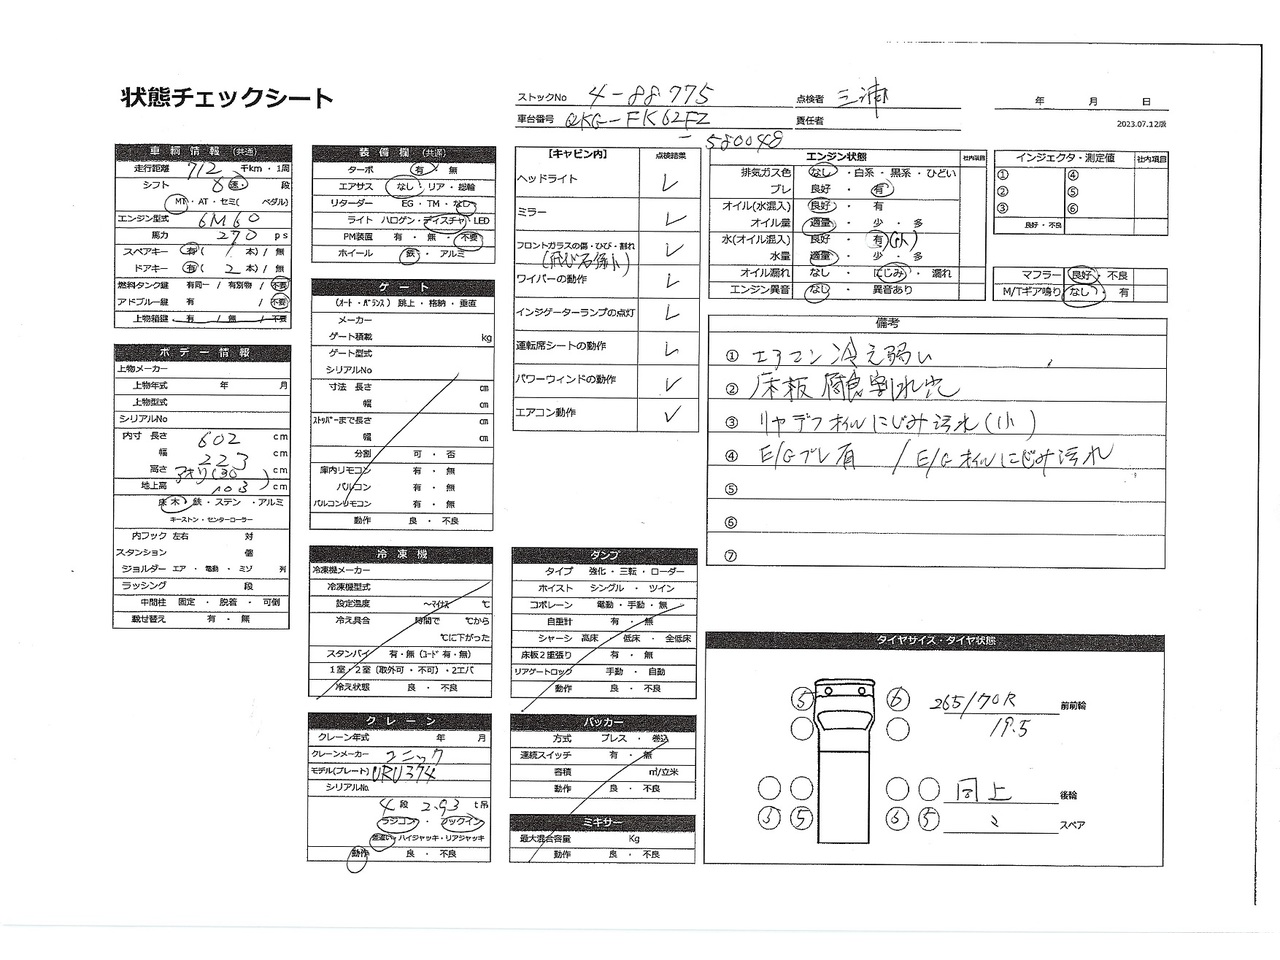 状態チェックシート
ストックNo 4-88775
点検者 三浦
車台番号 QKG-FK62FZ
-580048
責任者
年 月 日
2023.07.12版
車輌情報 (共通)
走行距離 712 千km・1周
シフト 8 速・ 段
MT・AT・セミ( ペダル)
エンジン型式 6M60
馬力 270 ps
スペアキー 有( 1 本) / 無
ドアキー 有( 2 本) / 無
燃料タンク鍵 有同一 / 有別物 / 不要
アドブルー鍵 有 / 不要
上物箱鍵 有 / 無 / 不要
ボデー情報
上物メーカー
上物年式 年 月
上物型式
シリアルNo
内寸 長さ 602 cm
幅 223 cm
高さ アオリ(30) cm
地上高 103 cm
床 木・鉄・ステン・アルミ
キーストン・センターローラー
内フック 左右 対
スタンション 個
ジョルダー エア・電動・ミゾ 列
ラッシング 段
中間柱 固定・脱着・可倒
載せ替え 有・無
装備欄 (共通)
ターボ 有・無
エアサス なし・リア・総輪
リターダー EG・TM・なし
ライト ハロゲン・ディスチャ・LED
PM装置 有・無・不要
ホイール 鉄・アルミ
ゲート
(ｵｰﾄ・ﾊﾞﾗﾝｽ) 跳上・格納・垂直
メーカー
ゲート積載 kg
ゲート型式
シリアルNo
寸法 長さ cm
幅 cm
ｽﾄｯﾊﾟｰまで長さ cm
幅 cm
分割 可・否
庫内リモコン 有・無
バルコン 有・無
バルコンリモコン 有・無
動作 良・不良
冷凍機
冷凍機メーカー
冷凍機型式
設定温度 ～ﾏｲﾅｽ ℃
冷え具合 時間で ℃から
℃に下がった
スタンバイ 有・無 (ｺｰﾄﾞ 有・無)
1室・2室 (取外可・不可)・2エバ
冷え状態 良・不良
クレーン
クレーン年式 年 月
クレーンメーカー ユニック
モデル(プレート) URU374
シリアルNo.
4 段 2.93 t吊
ラジコン・フックイン
差違い・ハイジャッキ・リアジャッキ
動作 良・不良
【キャビン内】 点検結果
ヘッドライト ✓
ミラー ✓
フロントガラスの傷・ひび・割れ ✓
(飛び石傷小)
ワイパーの動作 ✓
インジゲーターランプの点灯 ✓
運転席シートの動作 ✓
パワーウィンドの動作 ✓
エアコン動作 ✓
ダンプ
タイプ 強化・三転・ローダー
ホイスト シングル・ツイン
コボレーン 電動・手動・無
自重計 有・無
シャーシ 高床・低床・全低床
床板2重張り 有・無
リアゲートロック 手動・自動
動作 良・不良
パッカー
方式 プレス・巻込
連続スイッチ 有・無
容積 ㎥/立米
動作 良・不良
ミキサー
最大混合容量 Kg
動作 良・不良
エンジン状態 社内項目
排気ガス色 なし・白系・黒系・ひどい
ブレ 良好・有
オイル(水混入) 良好・有
オイル量 適量・少・多
水(オイル混入) 良好・有(小)
水量 適量・少・多
オイル漏れ なし・にじみ・漏れ
エンジン異音 なし・異音あり
インジェクタ・測定値 社内項目
① ④
② ⑤
③ ⑥
良好・不良
マフラー 良好・不良
M/Tギア鳴り なし・有
備考
① エアコン冷え弱い
② 床板腐食割れ穴
③ リヤデフオイルにじみ汚れ(小)
④ E/Gブレ有 / E/Gオイルにじみ汚れ
⑤
⑥
⑦
タイヤサイズ・タイヤ状態
⑤ ⑥ 265/70R 前前輪
19.5
同上 後輪
③ ⑤ ⑥ ⑤ ミ スペア